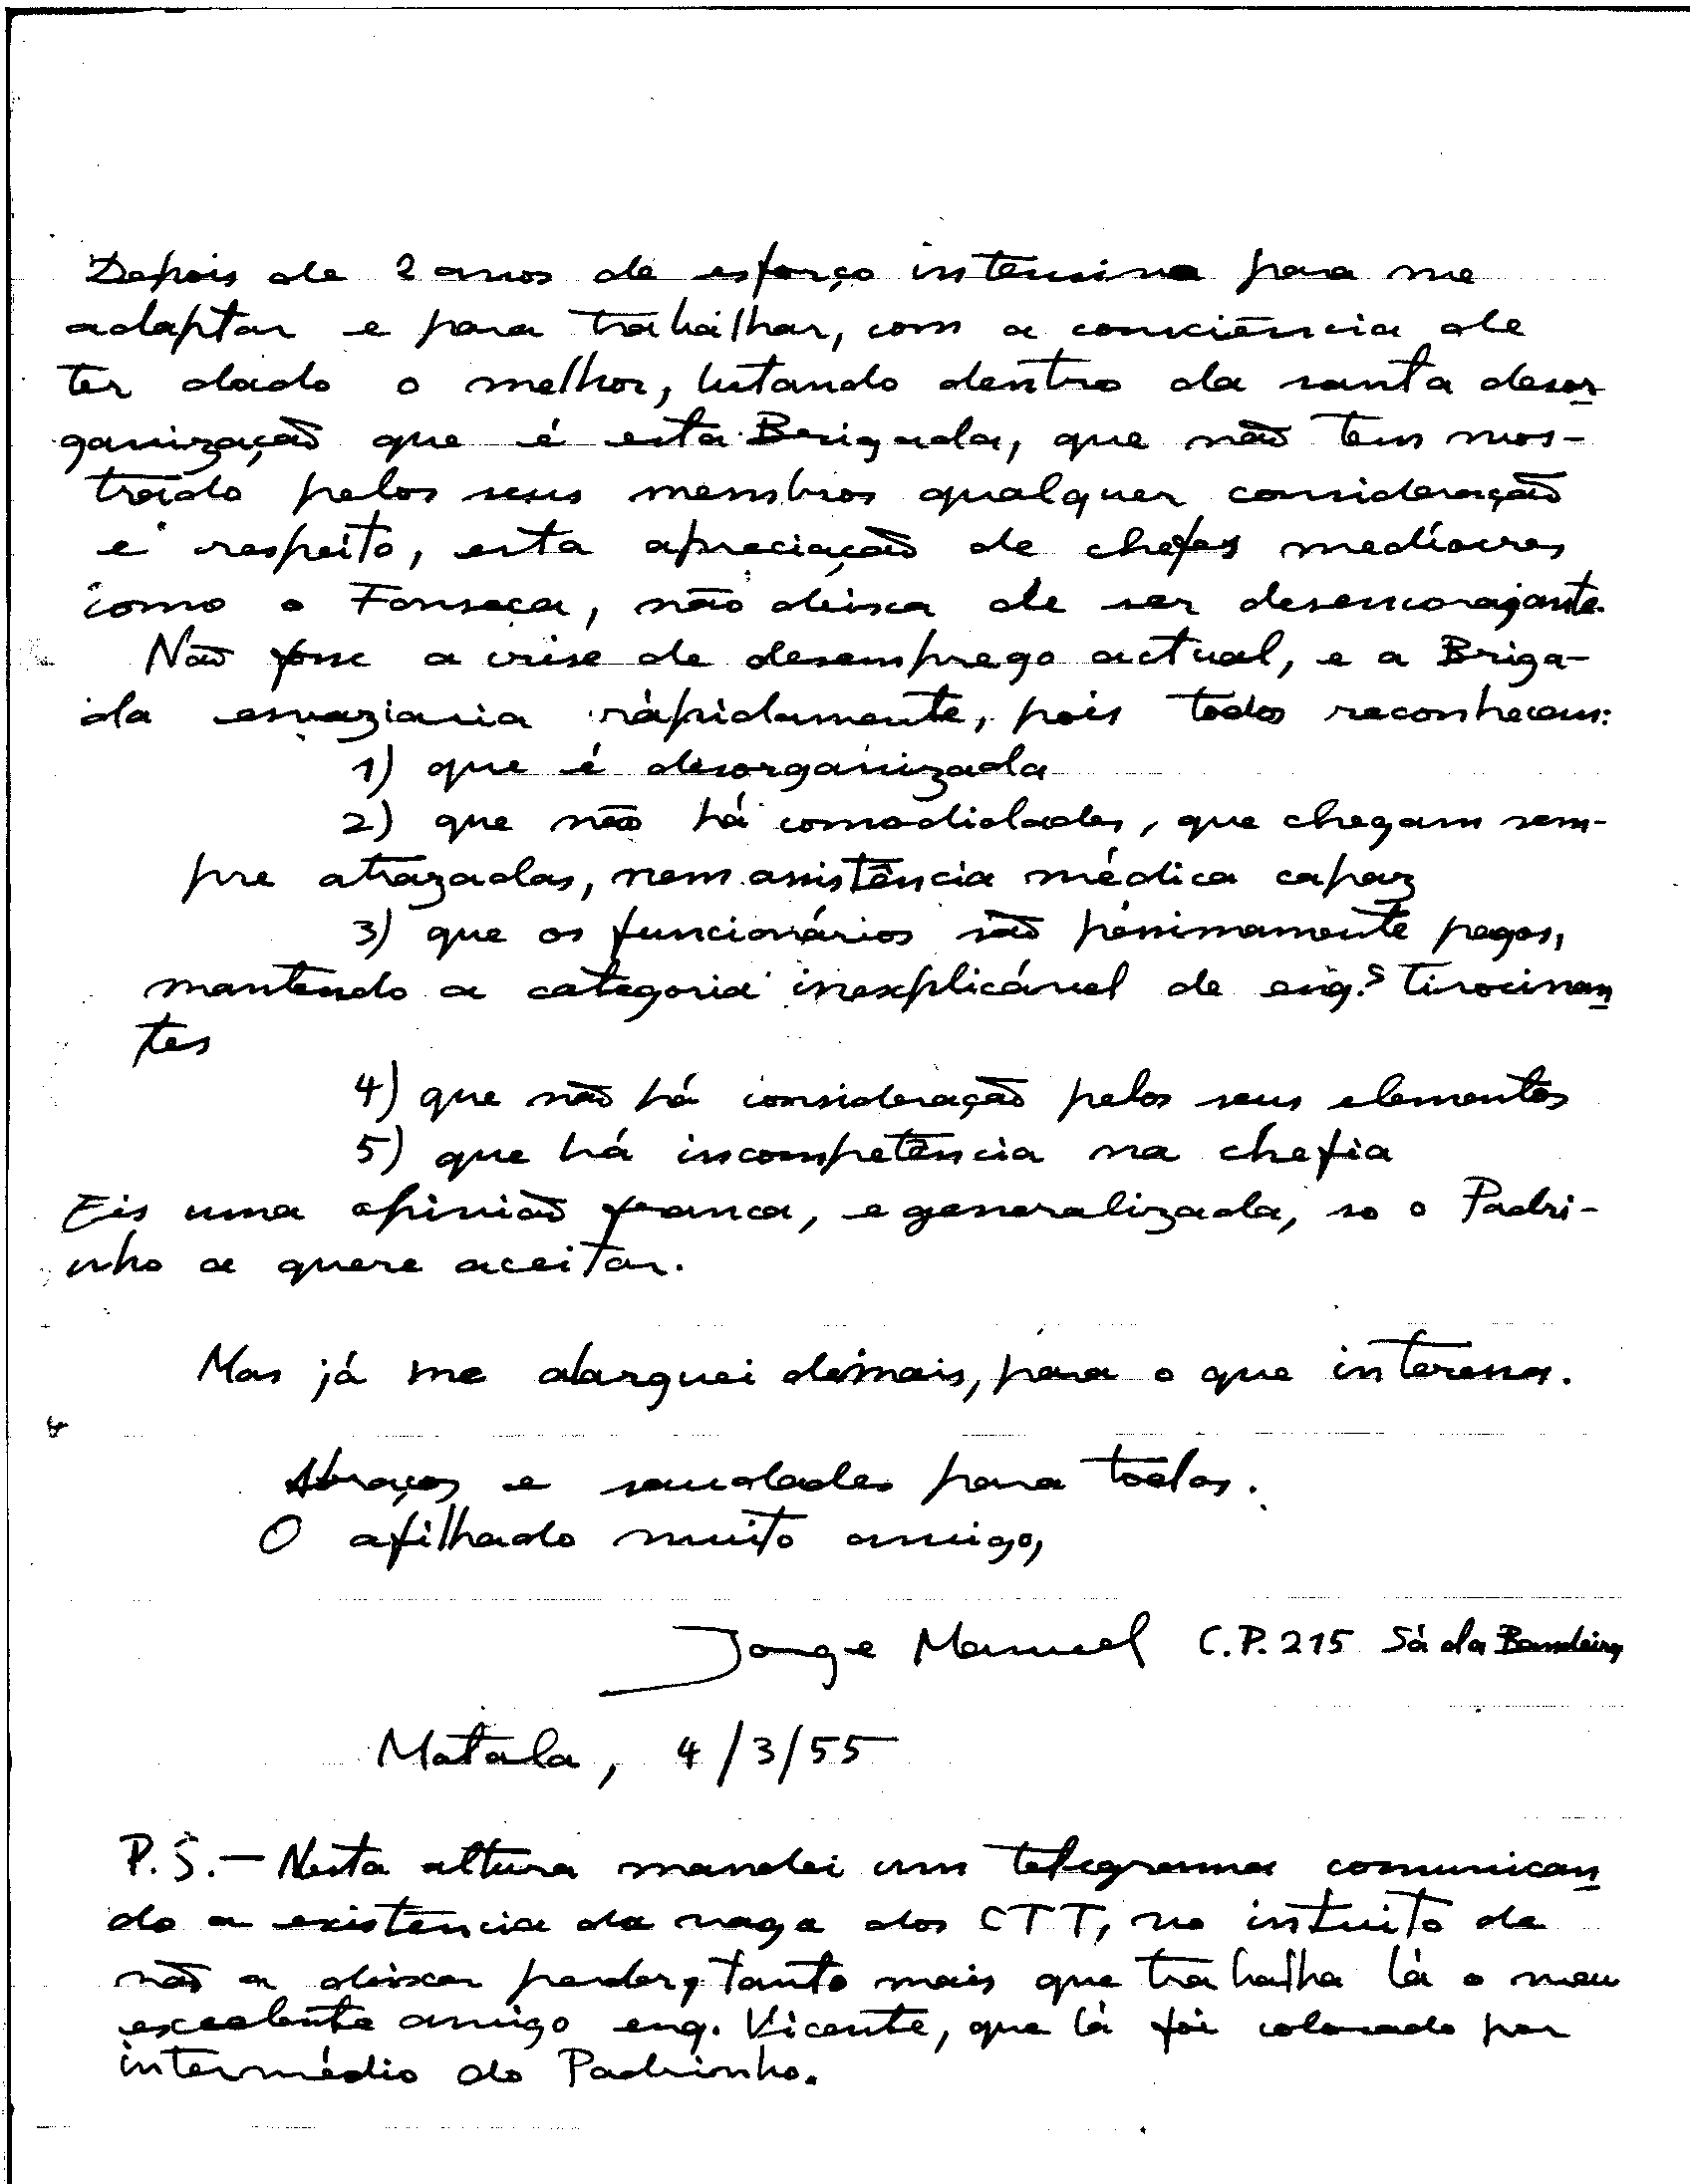 Depois de 2 anos de esforço intensivo para me
adaptar e para trabalhar, com a consciência de
ter dado o melhor, lutando dentro da santa desor-
ganização que é esta Brigada, que não tem mos-
trado pelos seus membros qualquer consideração
e respeito, esta apreciação de chefes medíocres
como o Fonseca, não deixa de ser desencorajante.
Não fosse a crise de desemprego actual, e a Briga-
da esvaziaria ràpidamente, pois todos reconhecem:
1) que é desorganizada
2) que não há comodidades, que chegam sem-
pre atrazadas, nem assistência médica capaz
3) que os funcionários são péssimamente pagos,
mantendo a categoria inexplicável de eng.s tirocinan-
tes
4) que não há consideração pelos seus elementos
5) que há incompetência na chefia
Eis uma opinião franca, e generalizada, se o Padri-
nho a quere aceitar.
Mas já me alarguei demais, para o que interessa.
Abraços e saudades para todos.
O afilhado muito amigo,
Jorge Manuel C.P. 215 Sá da Bandeira
Matala, 4/3/55
P.S. - Nesta altura mandei um telegrama comunican-
do a existência da vaga dos CTT, no intuito de
não a deixar perder, tanto mais que trabalha lá o meu
excelente amigo eng. Vicente, que lá foi colocado por
intermédio do Padrinho.